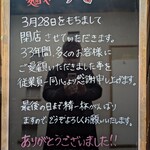 3月28日をもちまして
閉店させていただきます。
33年間、多くのお客様に
ご愛顧いただきました事を
従業員一同心より感謝申し上げます。
最後の日まで精一杯がんばり
ますので、どうぞよろしくお願いいたします。
ありがとうございました!!